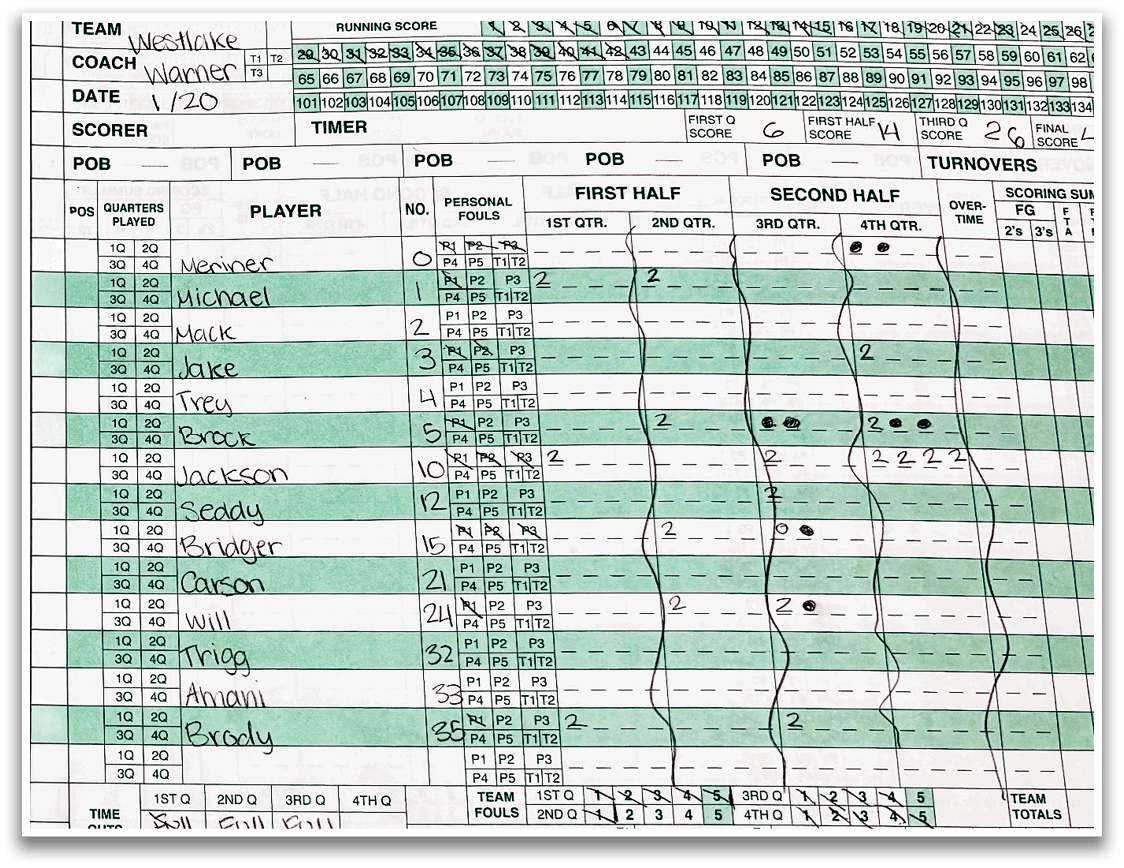 TEAM Westlake RUNNING SCORE 1 2 3 4 5 6 7 8 9 10 11 12 13 14 15 16 17 18 19 20 21 22 23 24 25 26
COACH Warner T1 T2 T3 29 30 31 32 33 34 35 36 37 38 39 40 41 42 43 44 45 46 47 48 49 50 51 52 53 54 55 56 57 58 59 60 61 62
65 66 67 68 69 70 71 72 73 74 75 76 77 78 79 80 81 82 83 84 85 86 87 88 89 90 91 92 93 94 95 96 97 98
DATE 1/20 101 102 103 104 105 106 107 108 109 110 111 112 113 114 115 116 117 118 119 120 121 122 123 124 125 126 127 128 129 130 131 132 133 134
SCORER TIMER FIRST Q SCORE 6 FIRST HALF SCORE 14 THIRD Q SCORE 26 FINAL SCORE
POB POB POB POB POB TURNOVERS
POS QUARTERS PLAYED PLAYER NO. PERSONAL FOULS FIRST HALF SECOND HALF OVER-TIME SCORING SUM
1ST QTR. 2ND QTR. 3RD QTR. 4TH QTR. FG 2's 3's FTA
1Q 2Q P1 P2 P3
3Q 4Q Meriner 0 P4 P5 T1 T2
1Q 2Q P1 P2 P3 2 2
3Q 4Q Michael 1 P4 P5 T1 T2
1Q 2Q P1 P2 P3
3Q 4Q Mack 2 P4 P5 T1 T2
1Q 2Q P1 P2 P3 2
3Q 4Q Jake 3 P4 P5 T1 T2
1Q 2Q P1 P2 P3
3Q 4Q Trey 4 P4 P5 T1 T2
1Q 2Q P1 P2 P3 2 2
3Q 4Q Brock 5 P4 P5 T1 T2
1Q 2Q P1 P2 P3 2 2 2 2 2 2
3Q 4Q Jackson 10 P4 P5 T1 T2
1Q 2Q P1 P2 P3 2
3Q 4Q Seddy 12 P4 P5 T1 T2
1Q 2Q P1 P2 P3 2 0
3Q 4Q Bridger 15 P4 P5 T1 T2
1Q 2Q P1 P2 P3
3Q 4Q Carson 21 P4 P5 T1 T2
1Q 2Q P1 P2 P3 2 2
3Q 4Q Will 24 P4 P5 T1 T2
1Q 2Q P1 P2 P3
3Q 4Q Trigg 32 P4 P5 T1 T2
1Q 2Q P1 P2 P3
3Q 4Q Amani 33 P4 P5 T1 T2
1Q 2Q P1 P2 P3 2 2
3Q 4Q Brody 35 P4 P5 T1 T2
1Q 2Q P1 P2 P3
3Q 4Q P4 P5 T1 T2
TIME OUTS 1ST Q 2ND Q 3RD Q 4TH Q TEAM FOULS 1ST Q 1 2 3 4 5 3RD Q 1 2 3 4 5 TEAM TOTALS
Full Full Full 2ND Q 1 2 3 4 5 4TH Q 1 2 3 4 5